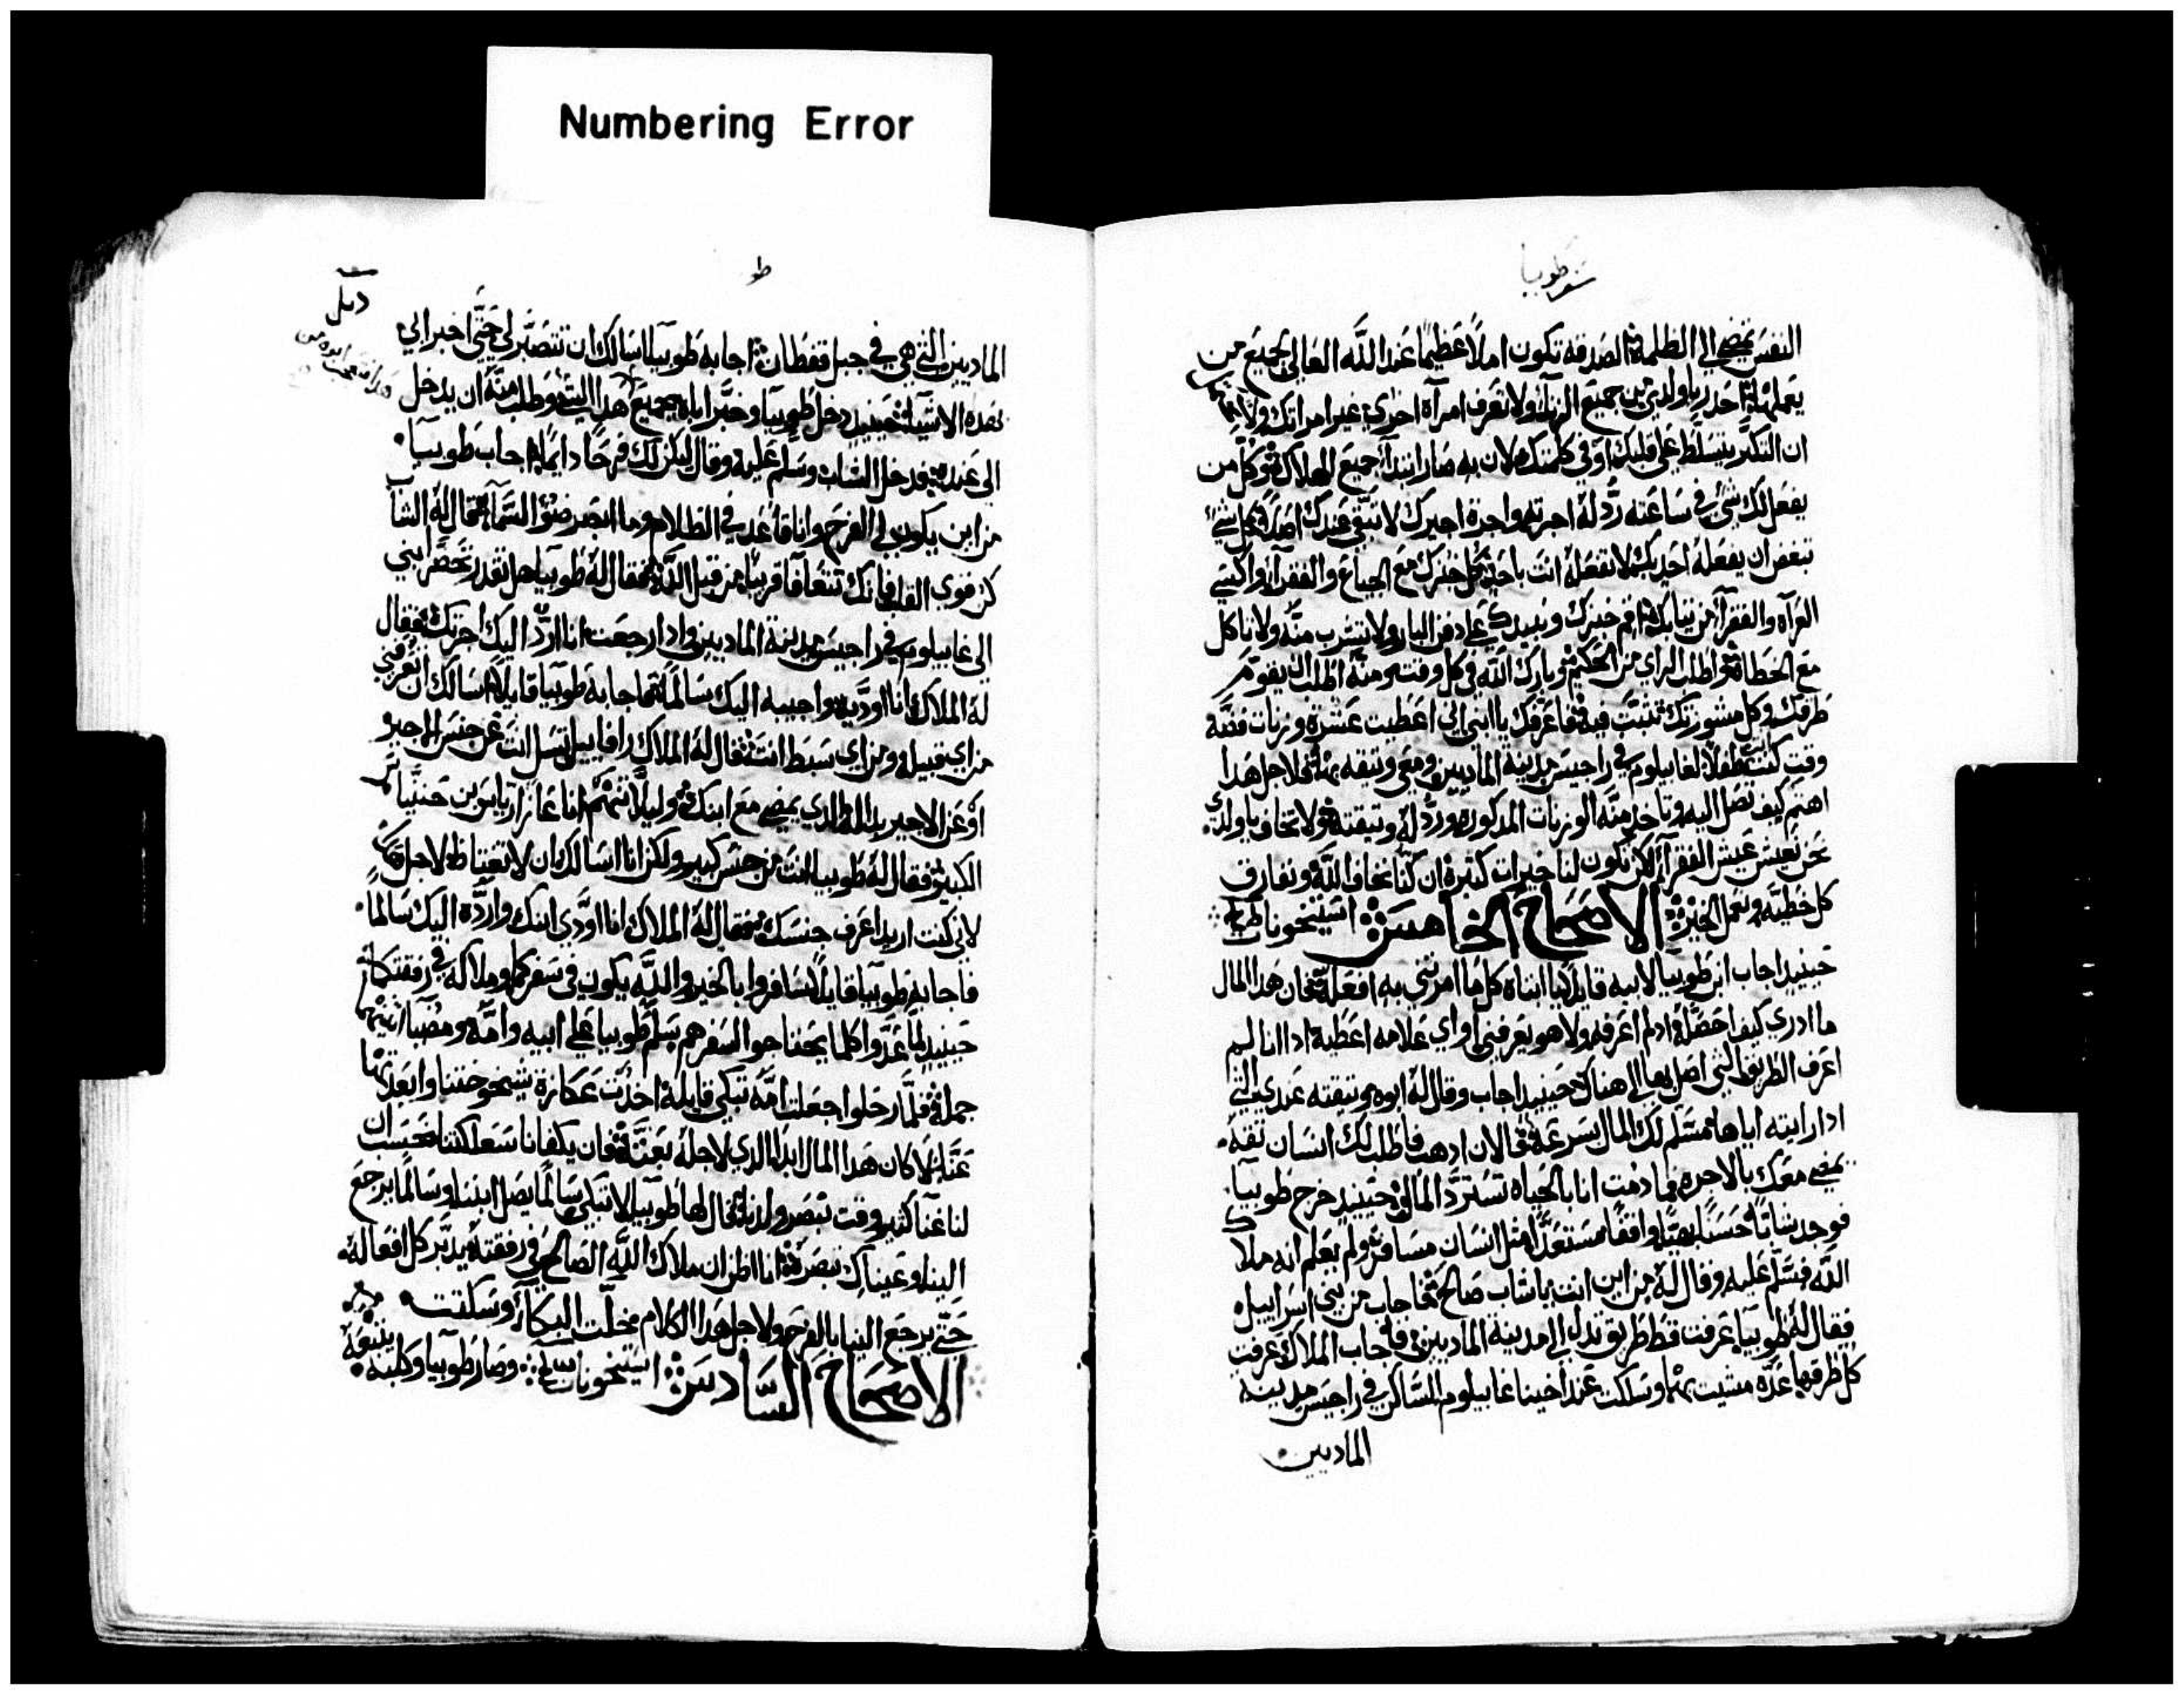 Numbering Error
سفر طوبيا
النفس تمضي الى الظلمة الصدقه تكون املاً عظيماً عند الله العالي لجميع من
يعملها احدر يا ولدي من جميع الزنا ولا تعرف امرآة اخري غير امراتك ولا
ان التكبر يتسلط علي قلبك او في كلمتك لان به صار ابتدآ جميع الهلاك وكل من
يفعل لك شي في ساعته ردّ له اجرته واجرة اجيرك لا تبقى عندك ابداً كل شي
تبغض ان يفعله احد بك لا تفعله انت باحد كل خبزك مع الجياع والفقرآ واكسي
العرآه والفقرآ من تيابك قم خبزك ونبيدك علي دفن البار ولا تشرب منه ولا تاكل
مع الخطاة اطلب الراي من الحكيم وبارك الله في كل وقت ومنه اطلب ان يقوم
طرقك وكل مشورتك تثبت فيه فاعرفك يا ابني اني اعطيت عشرة وزنات فضه
وقت كنت انت طفلاً لغابيلوم في راجيس مدينة الماديين ومعي وتيقه بها فلاجل هدا
اهتم كيف تصل اليه وتاخد منه الوزنات المدكوره وردّ له وتيقته ولا تخاف يا ولدي
نحن نعيش عيش الفقرآ لكن تكون لنا خيرات كتيرة ان كنا نخاف الله ونفارق
كل خطيه ونعمل الخير الاصحاح الخامس استيخونات
حينيد اجاب ابن طوبيا لابيه قايلاً يا ابتاه كل ما امرتني به افعله فان هدا المال
ما ادري كيف احصله اد لم اعرفه ولا هو يعرفني او اي علامه اعطيه ادا انا لم
اعرف الطريق التي اصل بها الي هناك حينيد اجاب وقال له ابوه وتيقته عندي التي
ادا رايته اياها يسلم لك المال بسرعة فالان ادهب فاطلب لك انسان تقه
يمضي معك بالاجره فما دمت انا بالحياه تسترد المال حينيد خرج طوبيا
فوجد شاباً حسناً بهياً واقفاً مستعداً مثل انسان مسافر ولم يعلم انه ملاك
الله فسلّم عليه وقال له من اين انت يا شاب صالح فاجاب من بني اسراييل
فقال له طوبيا عرفت قط طريق تدل الي مدينة الماديين فاجاب الملاك عرفت
كل طرقها عدّه مشيت بها وسكنت عند اخينا غابيلوم الساكن في راجيس مدينة
الماديين
طو
الماديين التي هي في جبل قفطان اجابه طوبيا اسالك ان تتصبر لي حتي اخبر ابي
بهده الاشيآ حينيد دخل طوبيا وخبر اباه بجميع هدا الشي وطلب منه ان يدخل
الى عنده فدخل الشاب وسلم عليه وقال ليكن لك فرحاً دايماً اجاب طوبيا
من اين يكون لي الفرح وانا قاعد في الظلام وما ابصر ضو السمآ فقال له الشاب
كن قوي القلب فانك تتعافا قريباً من قبل الله فقال له طوبيا هل تقدر تحضر ابني
الى غابيلوم في راجيس مدينة الماديين وادا رجعت انا اردّ اليك اجرتك فقال
له الملاك انا اوديه واجيبه اليك سالماً فاجابه طوبيا قايلاً اسالك ان تعرفني
من اي قبيله ومن اي سبط انت فقال له الملاك رافاييل تسل انت عن جنس الاجير
او عن الاجير بداته الدي يمضي مع ابنك وليلا تهتم انا عازاريا بن حننيا
الكبير فقال له طوبيا انت من جنس كبير ولكن انا اسالك ان لا تغتاظ لاجل
لاني كنت اريد اعرف جنسك فقال له الملاك انا اودي ابنك وارده اليك سالماً
فاجابه طوبيا قايلاً سافروا بالخير والله يكون في سفركم وملاكه في رفقتكم
حينيد لما عدّوا كلما يحتاجوا السفرهم سلم طوبيا علي ابيه وامه ومضيا اتنينهما
جملة فلما رحلوا جعلت امه تبكي قايلة اخدت عكازة شيخوختنا وابعدتها
عنا لا كان هدا المال ابداً الدي لاجله بعتته فان يكفانا سعلكتنا نحسب ان
لنا غنآ كتير وقت نبصر ولدنا فقال لها طوبيا لا تبكي سالماً يصل ابننا وسالماً يرجع
الينا وعيناك تبصره انا اظن ان ملاك الله الصالح في رفقته يدبر كل افعاله
حتي يرجع الينا بالفرح ولاجل هدا الكلام فخلّت البكآ وسكتت
الاصحاح السادس استيخونات وصار طوبيا وكلبه يتبعه